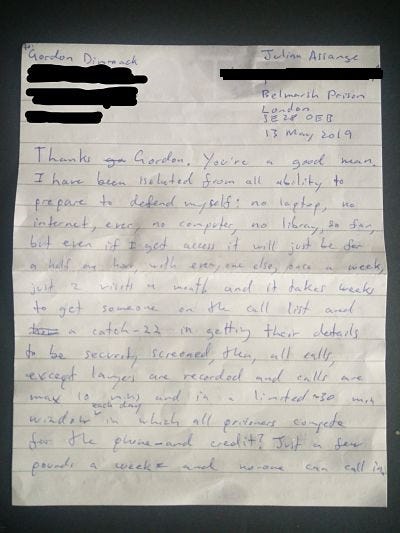 To Gordon Dimmack
Julian Assange
Belmarsh Prison
London
SE28 0EB
13 May 2019
Thanks Gordon. You're a good man.
I have been isolated from all ability to
prepare to defend myself: no laptop, no
internet, ever, no computer, no library, so far,
but even if I get access it will just be for
a half an hour, with everyone else, once a week,
just 2 visits a month and it takes weeks
to get someone on the call list and
a catch-22 in getting their details
to be security screened, then, all calls,
except lawyer are recorded and calls are
max 10 mins and in a limited ~30 min
each day
window in which all prisoners compete
for the phone—and credit? Just a few
pounds a week - and no-one can call in.